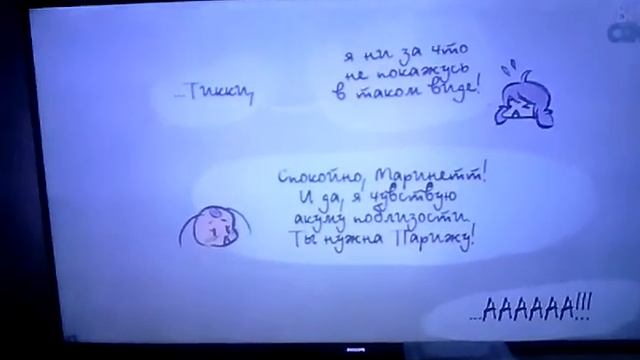 ...Тикки,
я ни за что
не покажусь
в таком виде!
Спокойно, Маринетт!
И да, я чувствую
акуму поблизости.
Ты нужна Парижу!
...АААААА!!!